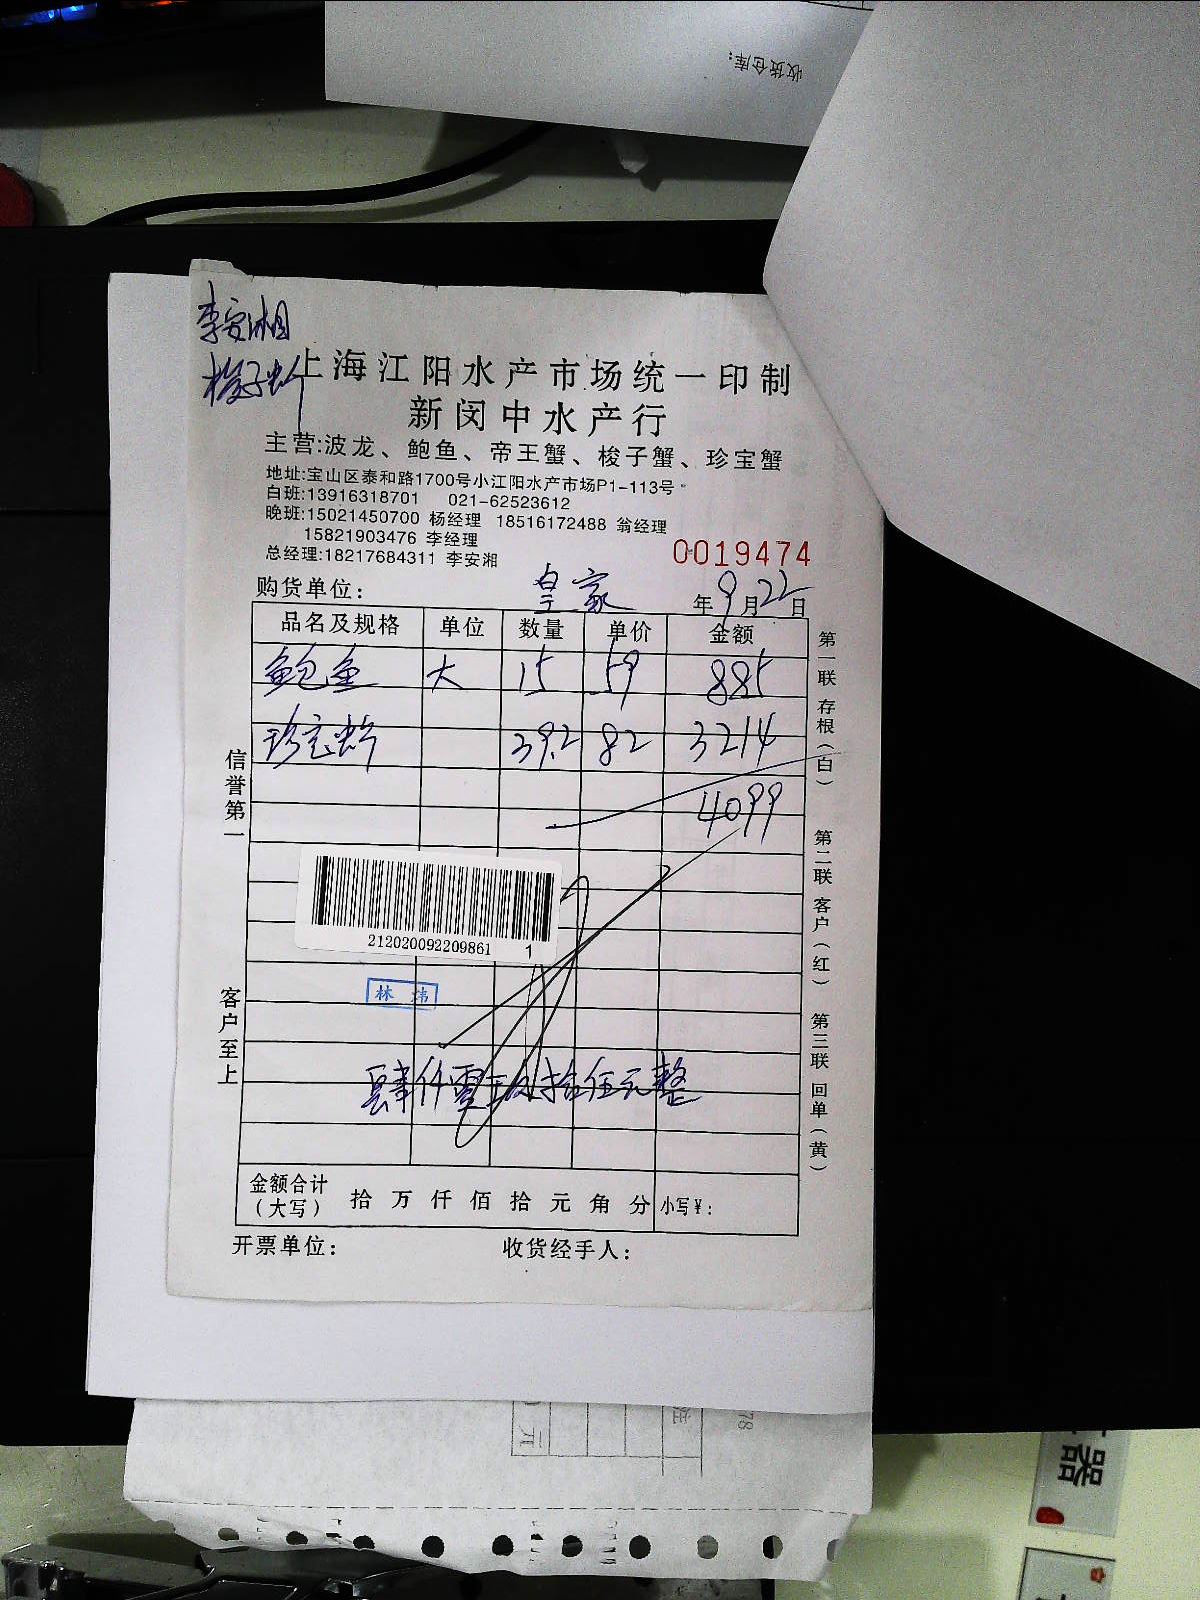 收货仓库：
李安湘
梭子蟹
上海江阳水产市场统一印制
新闵中水产行
主营:波龙、鲍鱼、帝王蟹、梭子蟹、珍宝蟹
地址:宝山区泰和路1700号小江阳水产市场P1-113号
白班:13916318701 021-62523612
晚班:15021450700 杨经理 18516172488 翁经理
15821903476 李经理
总经理:18217684311 李安湘
0019474
购货单位： 皇家 年9月22日
品名及规格 单位 数量 单价 金额
鲍鱼 大 15 59 885
珍宝蟹 39.2 82 3214
4099
信誉第一
客户至上
第一联 存根（白）
第二联 客户（红）
第三联 回单（黄）
212020092209861 1
林炜
肆仟零玖拾伍元整
金额合计（大写） 拾 万 仟 佰 拾 元 角 分 小写￥:
开票单位： 收货经手人：
78
注
元
器